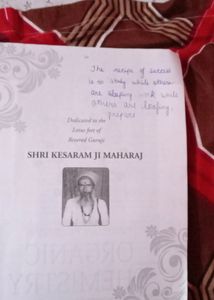 The recipe of success
is to study while others
are sleeping work while
others are loafing.
prepare
Dedicated to the
Lotus feet of
Revered Guruji
SHRI KESARAM JI MAHARAJ
ORGANIC
CHEMISTRY